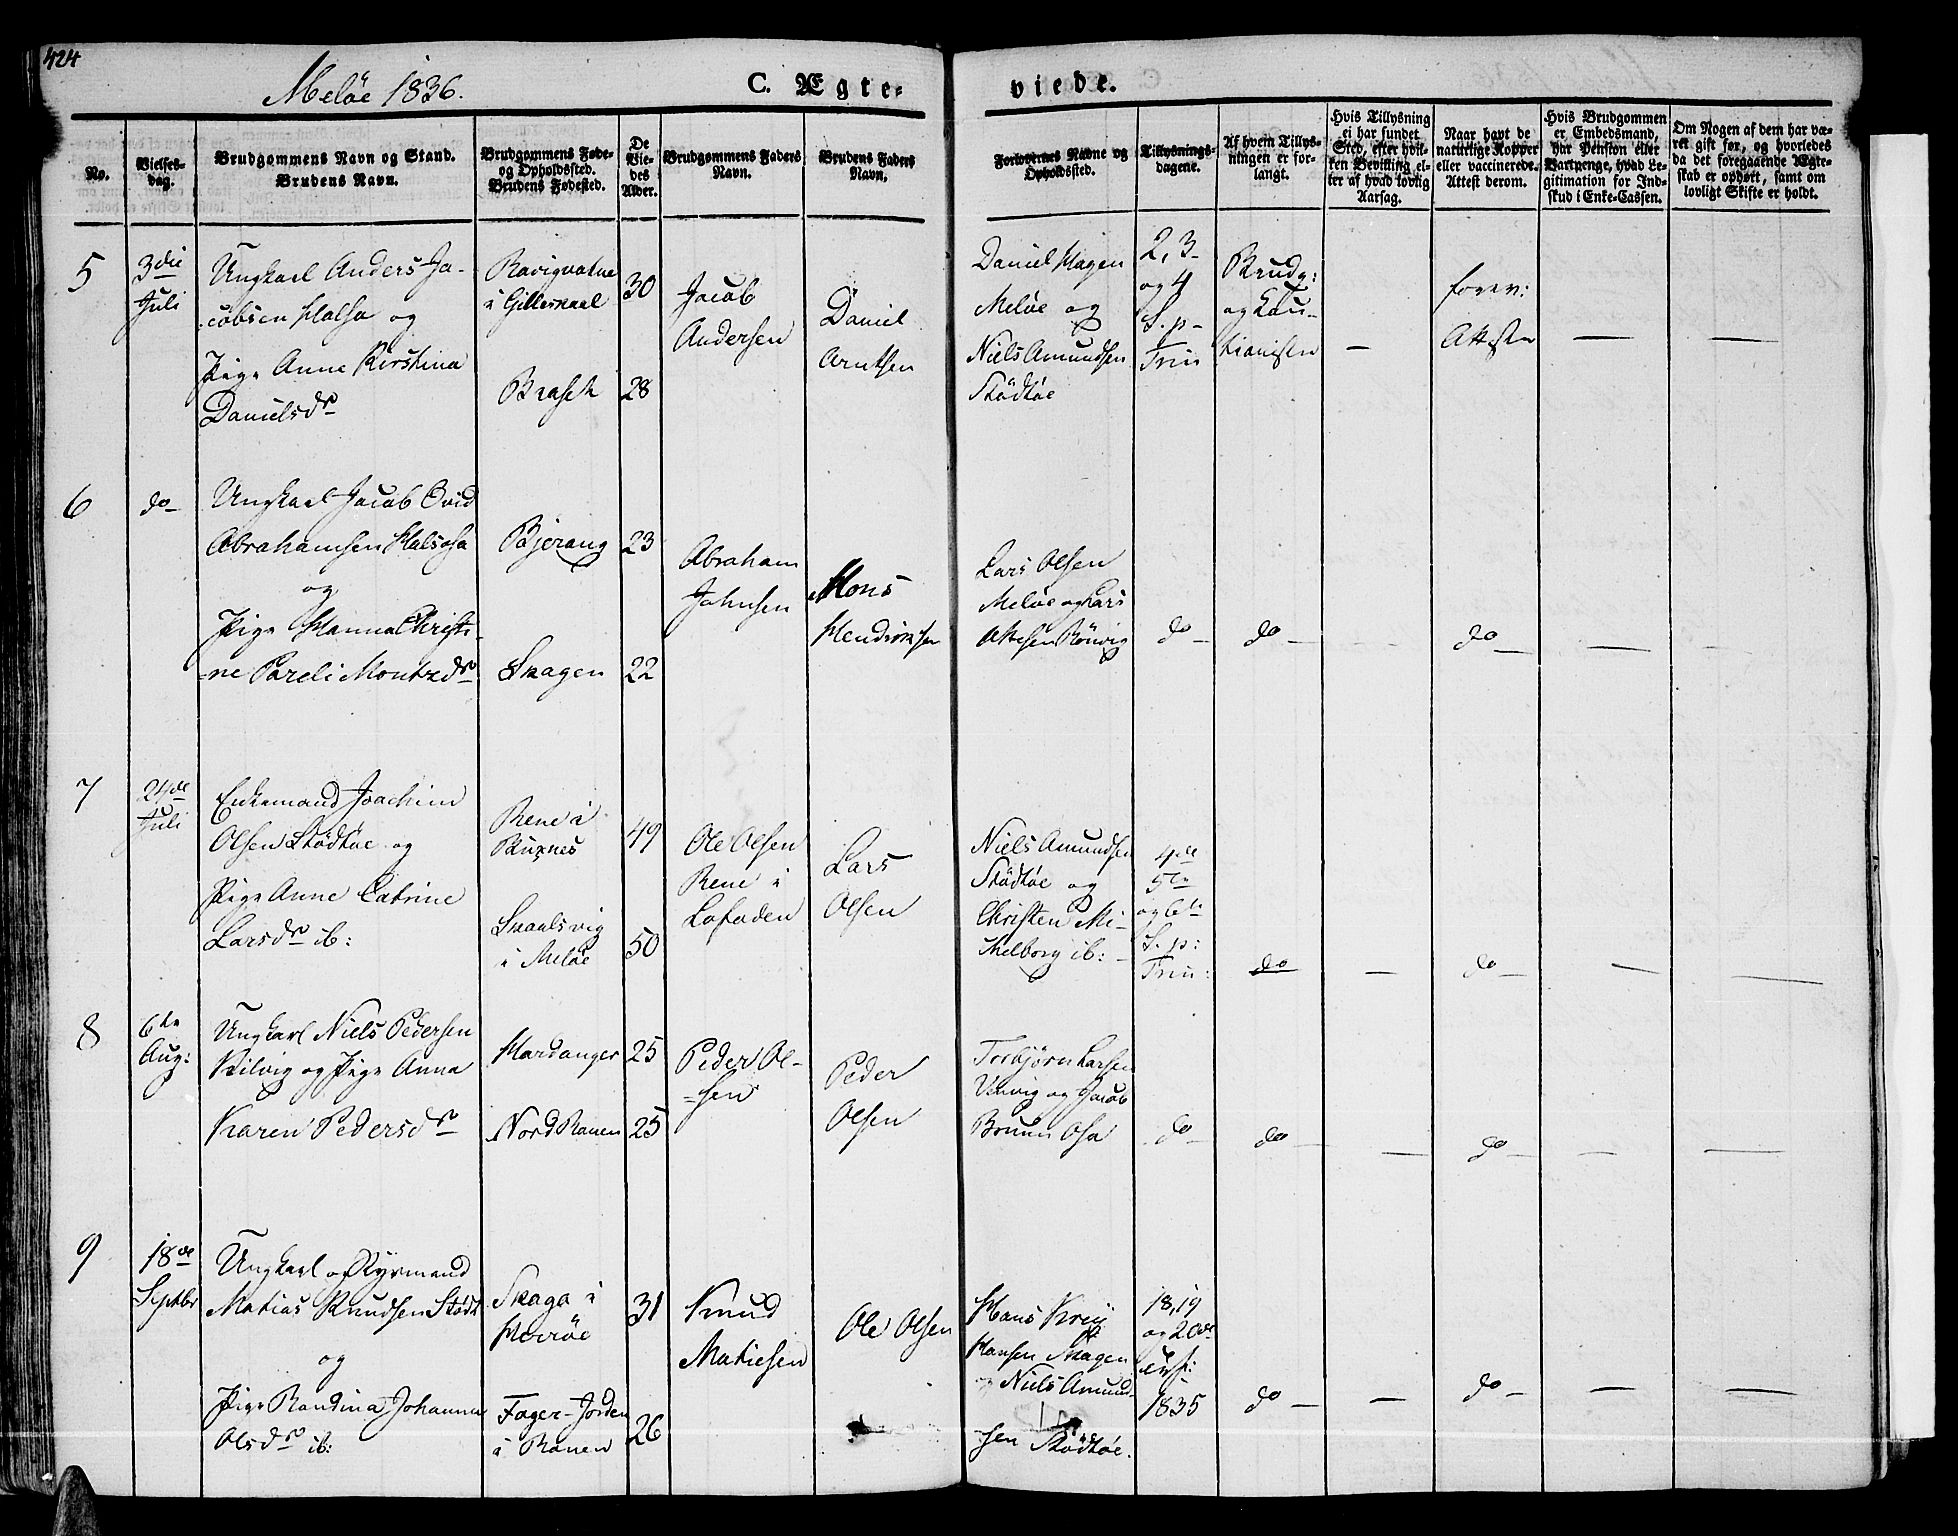 424
Meløe 1836.
C. Ægte-
viede.
No.
Vielses-
dag.
Brudgommens Navn og Stand.
Brudens Navn.
Brudgommens Føde-
og Opholdssted.
Brudens Fødested.
De
Vie-
des
Alder.
Brudgommens Faders
Navn.
Brudens Faders
Navn.
Forlovernes Navne og
Opholdssted.
Tillysnings-
dagene.
Af hvem Tillys-
ningen er for-
langt.
Hvis Tillysning
ei har fundet
Sted, efter hvil-
ken Bevilling el-
ler af hvad lovlig
Aarsag.
Naar havt de
naturlige Kopper
eller vaccinerede.
Attest derom.
Hvis Brudgommen
er Embedsmand,
har Pension eller
Vartpenge, hvad Le-
gitimation for Ind-
skud i Enke-Cassen.
Om Nogen af dem har væ-
ret gift før, og hvorledes
da det foregaaende Ægte-
skab er ophørt, samt om
lovligt Skifte er holdt.
5
3die
Juli
Ungkarl Anders Ja-
cobsen Halsa og
Pige Anne Kirstina
Danielsdr
i Gilleskaal
Brasch
30
28
Jacob
Andersen
Daniel
Arntsen
Daniel Hagen
Meløe og
Niels Amundsen
Stødtøe
2, 3
og 4
S. p
Trin
Brudg:
og Cau-
tionisten
—
forev:
Attester
—
—
6
do
Ungkarl Jacob Ovid
Abrahamsen Halsosa
og
Pige Hanna Christi-
ne Pareli Montzdr
Bjerang
Skagen
23
22
Abraham
Johnsen
Mons
Hendriksen
Lars Olsen
Meløe og Lars
Rönvig
do
do
—
do
—
—
7
24de
Juli
Enkemand Joachim
Olsen Stødtøe og
Pige Anne Catrine
Larsdr ib:
Rene i
Buxnes
Skaalsvig
i Meløe
49
50
Ole Olsen
Rene i
Lofoden
Lars
Olsen
Niels Amundsen
Stødtøe og
Christen Mi-
kelborg ib:
4de
5te
og 6te
S. p:
Trin:
do
—
do
—
—
8
6te
Aug:
Ungkarl Niels Pedersen
Kilvig og Pige Anna
Karen Pedersdr
Hardanger
Nord Ranen
25
25
Peder Ol-
sen
Peder
Olsen
Torbjørn Larsen
og Jacob
Bruun Osa
do
do
—
do
—
—
9
18de
Septbr
Ungkarl og Styrmand
Matias Knudsen Stødt
og
Pige Randina Johanna
Olsdr ib:
Skaga i
Herröe
Fager-Jorden
i Ranen
31
26
Knud
Matiesen
Ole Olsen
Hans Krey
Hansen Skagen
og Niels Amund-
sen Stødtøe.
18, 19
og 20de
1835
do
—
do
—
—